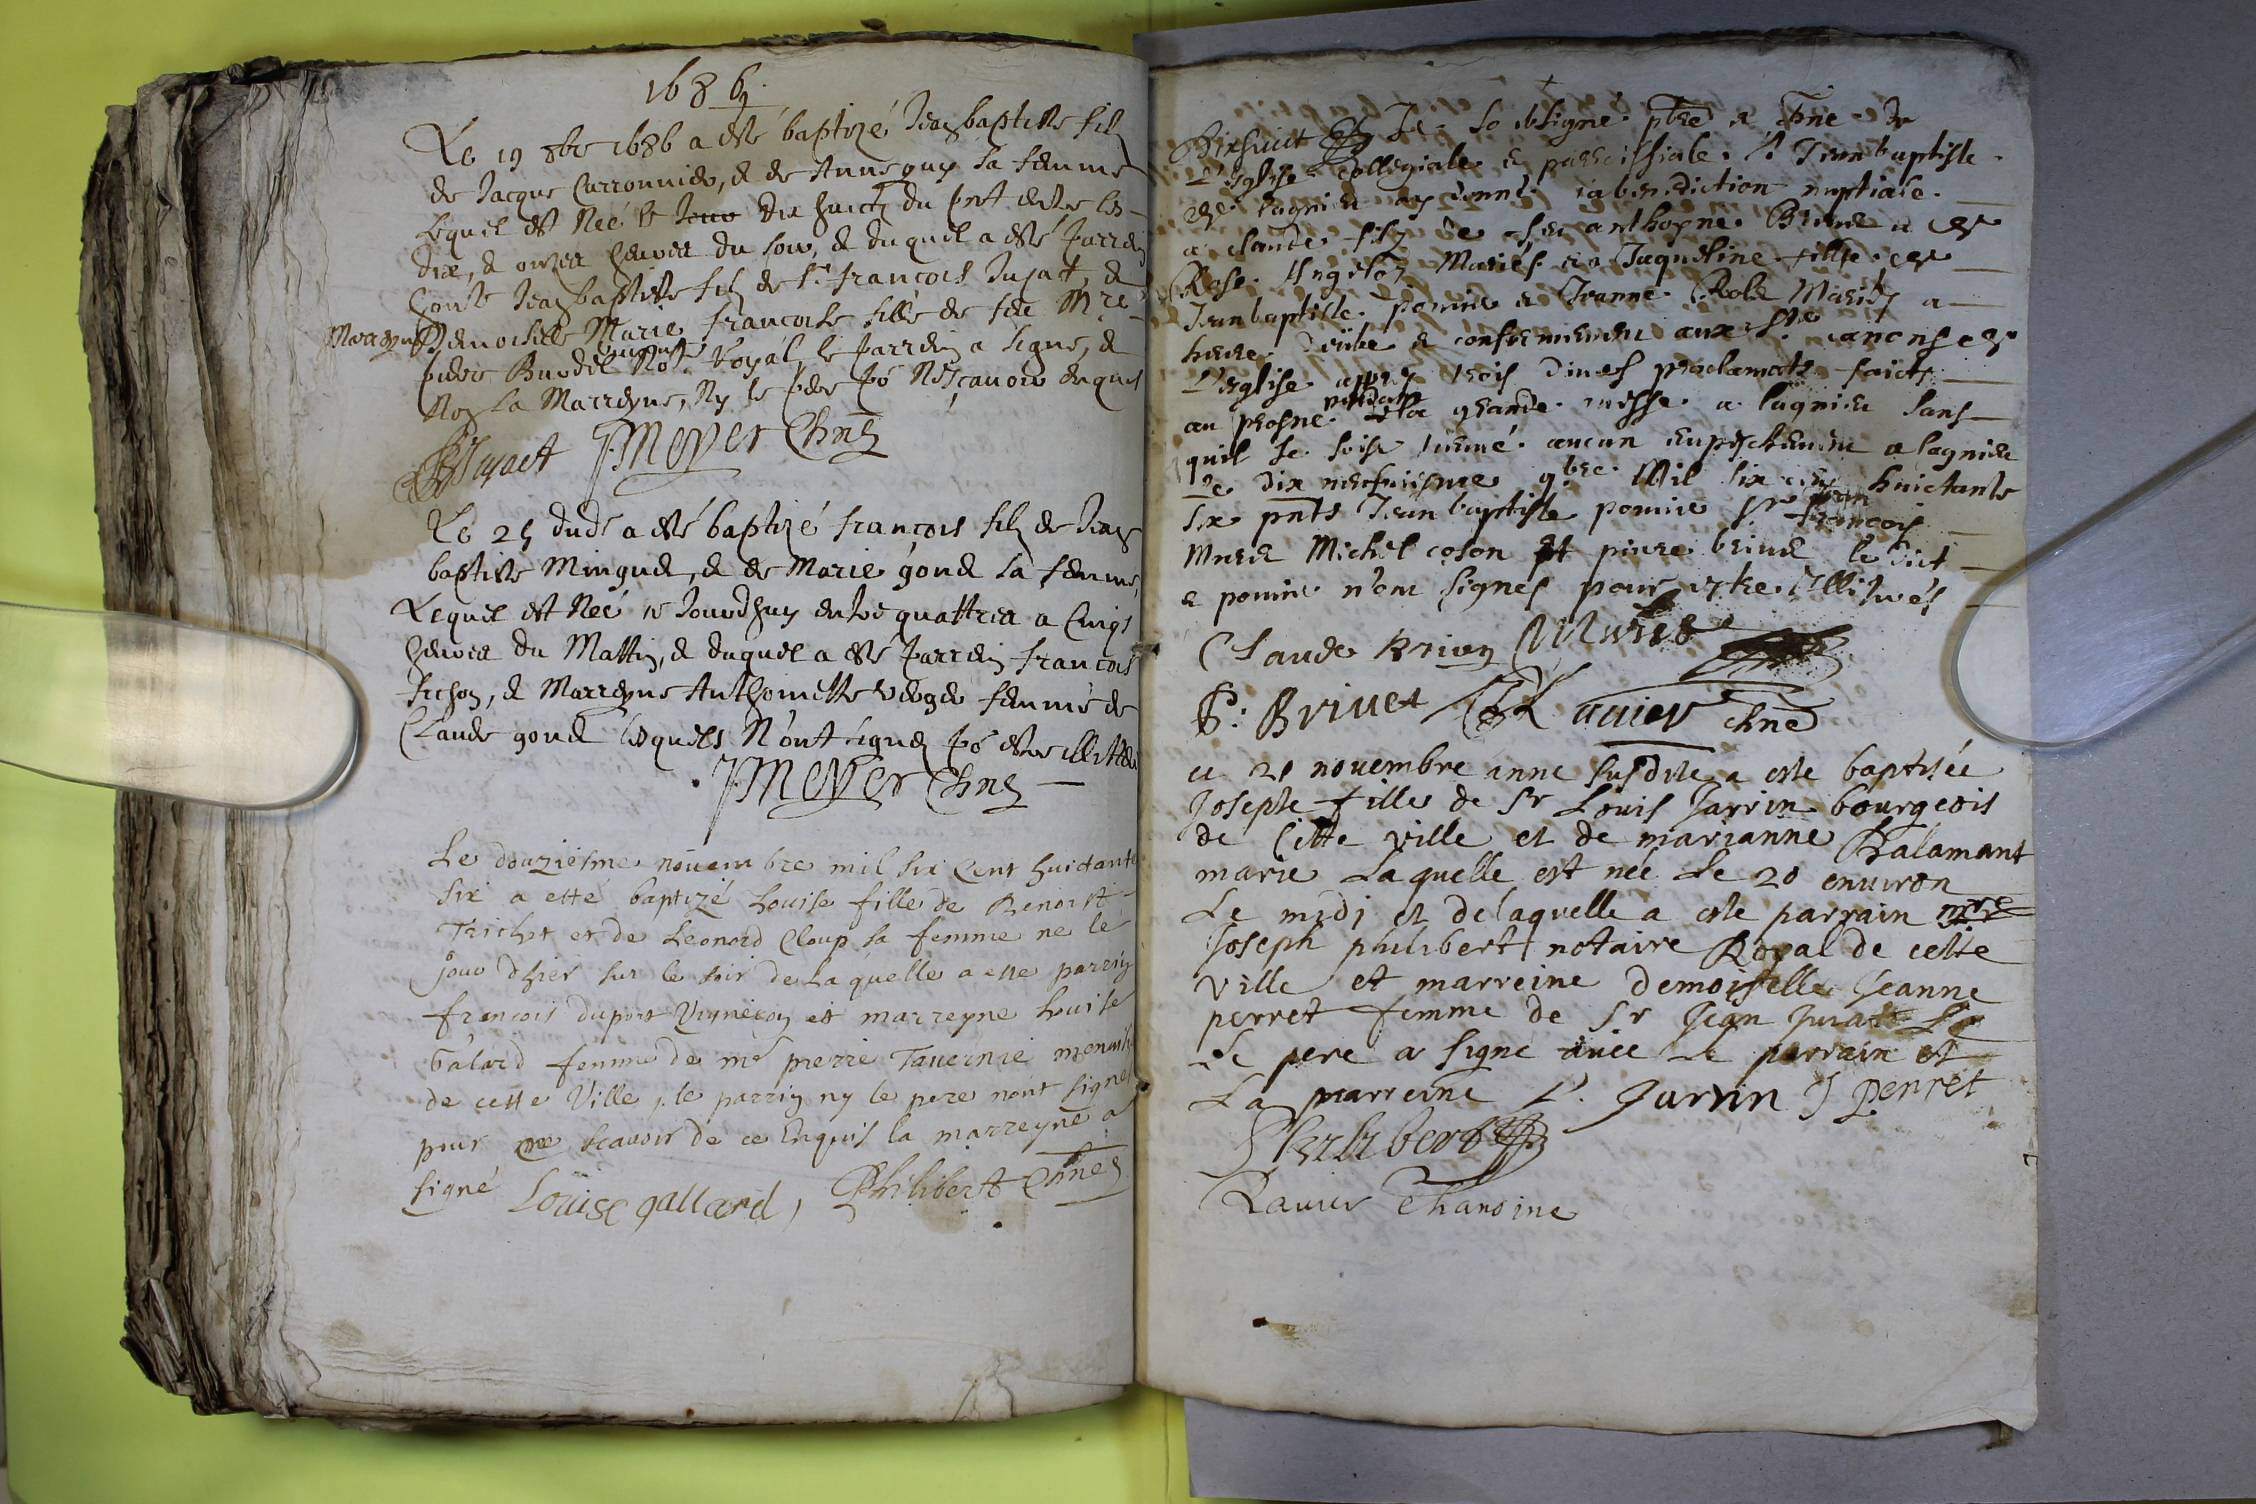 1686
Le 19 8bre 1686 a esté baptizé Jeanbaptiste filz
de Jacque Carronnier, & de Anne guy sa femme
Lequel est Neé le Jour dix huict du pnt entre les
dix, & onzes heures du soir, & duquel a esté parrein
honble Jeanbaptiste filz de Sr. françois Jujat, &
Marreyne Demoiselle Marie francoise fille de feu Mre
pierre Burdel Notre Royal, le parrein a signé, &
Non La Marreyne, Ny le pere po Nesçavoir enquis
Jujact J Meyer Chne
Le 25 dudt a esté baptizé françois filz de Jean
baptiste Minguet, & de Marie gonet sa femme,
Lequel est Neé ce Jourdhuy entre quattres a Cinqs
heures du Mattin, & duquel a esté parrein francois
, & Marreyne Anthoinette verger femme de
Claude gonet lesquels N'ont signez po estre illitteré
J Meyer Chne
Le douziesme novembre mil six Cent huictante
six a esté baptizé Louise fille de Benoist
Trichet et de Leonord Cloup sa femme ne le
jour dhier sur le soir de Laquelle a esté parrin
françois duport Vigneron et marreyne Louise
Galard femme de mr pierre Tavernie menusie
de cette Ville, le parrin ny le pere nont signes
pour ne scavoir de ce Enquis la marreyne a
signé Louise gallard, Philibert Chne
Je sobsigné pbre & Chne de
L'Eglise Collegiale & parroissiale St Jeanbaptiste
de lagnieu ay donné la benediction nuptiale
a claude filz de feu anthoyne Brivet & de
Rose mariés & a Jaqueline fille de
Jeanbaptiste pomier & Jeanne Mariés a
heure deube & conformement aux Sts canons de
L'esglise apprez trois dives proclamats faicts
au prosne pendant la grande messe a lagnieu sans
quil se soise aucun empeschement a lagnieu
Le dix neufviesme 9bre Mil six cent huictante
six pnts Jeanbaptiste pomier Sr Jean françois
Michel colon Et pierre brivet le dict
& pomier n'ont signes pour estre Illitrés
Claude Briven
P: Brivet Ravier chne
ce 21 novembre anne susdite a este baptisée
Josephe fille de Sr Louis Jarrin bourgeois
de Cette ville et de marianne Chalamant
marie Laquelle est née Le 20 environ
Le midi et delaquelle a este parrain mre
Joseph philibert notaire Royal de cette
ville et marreine demoiselle Jeanne
perret femme de Sr Jean Jujat
Le pere a signe avec Le parrain et
La marreine L. Jarrin J perret
Philibert
Ravier Chanoine